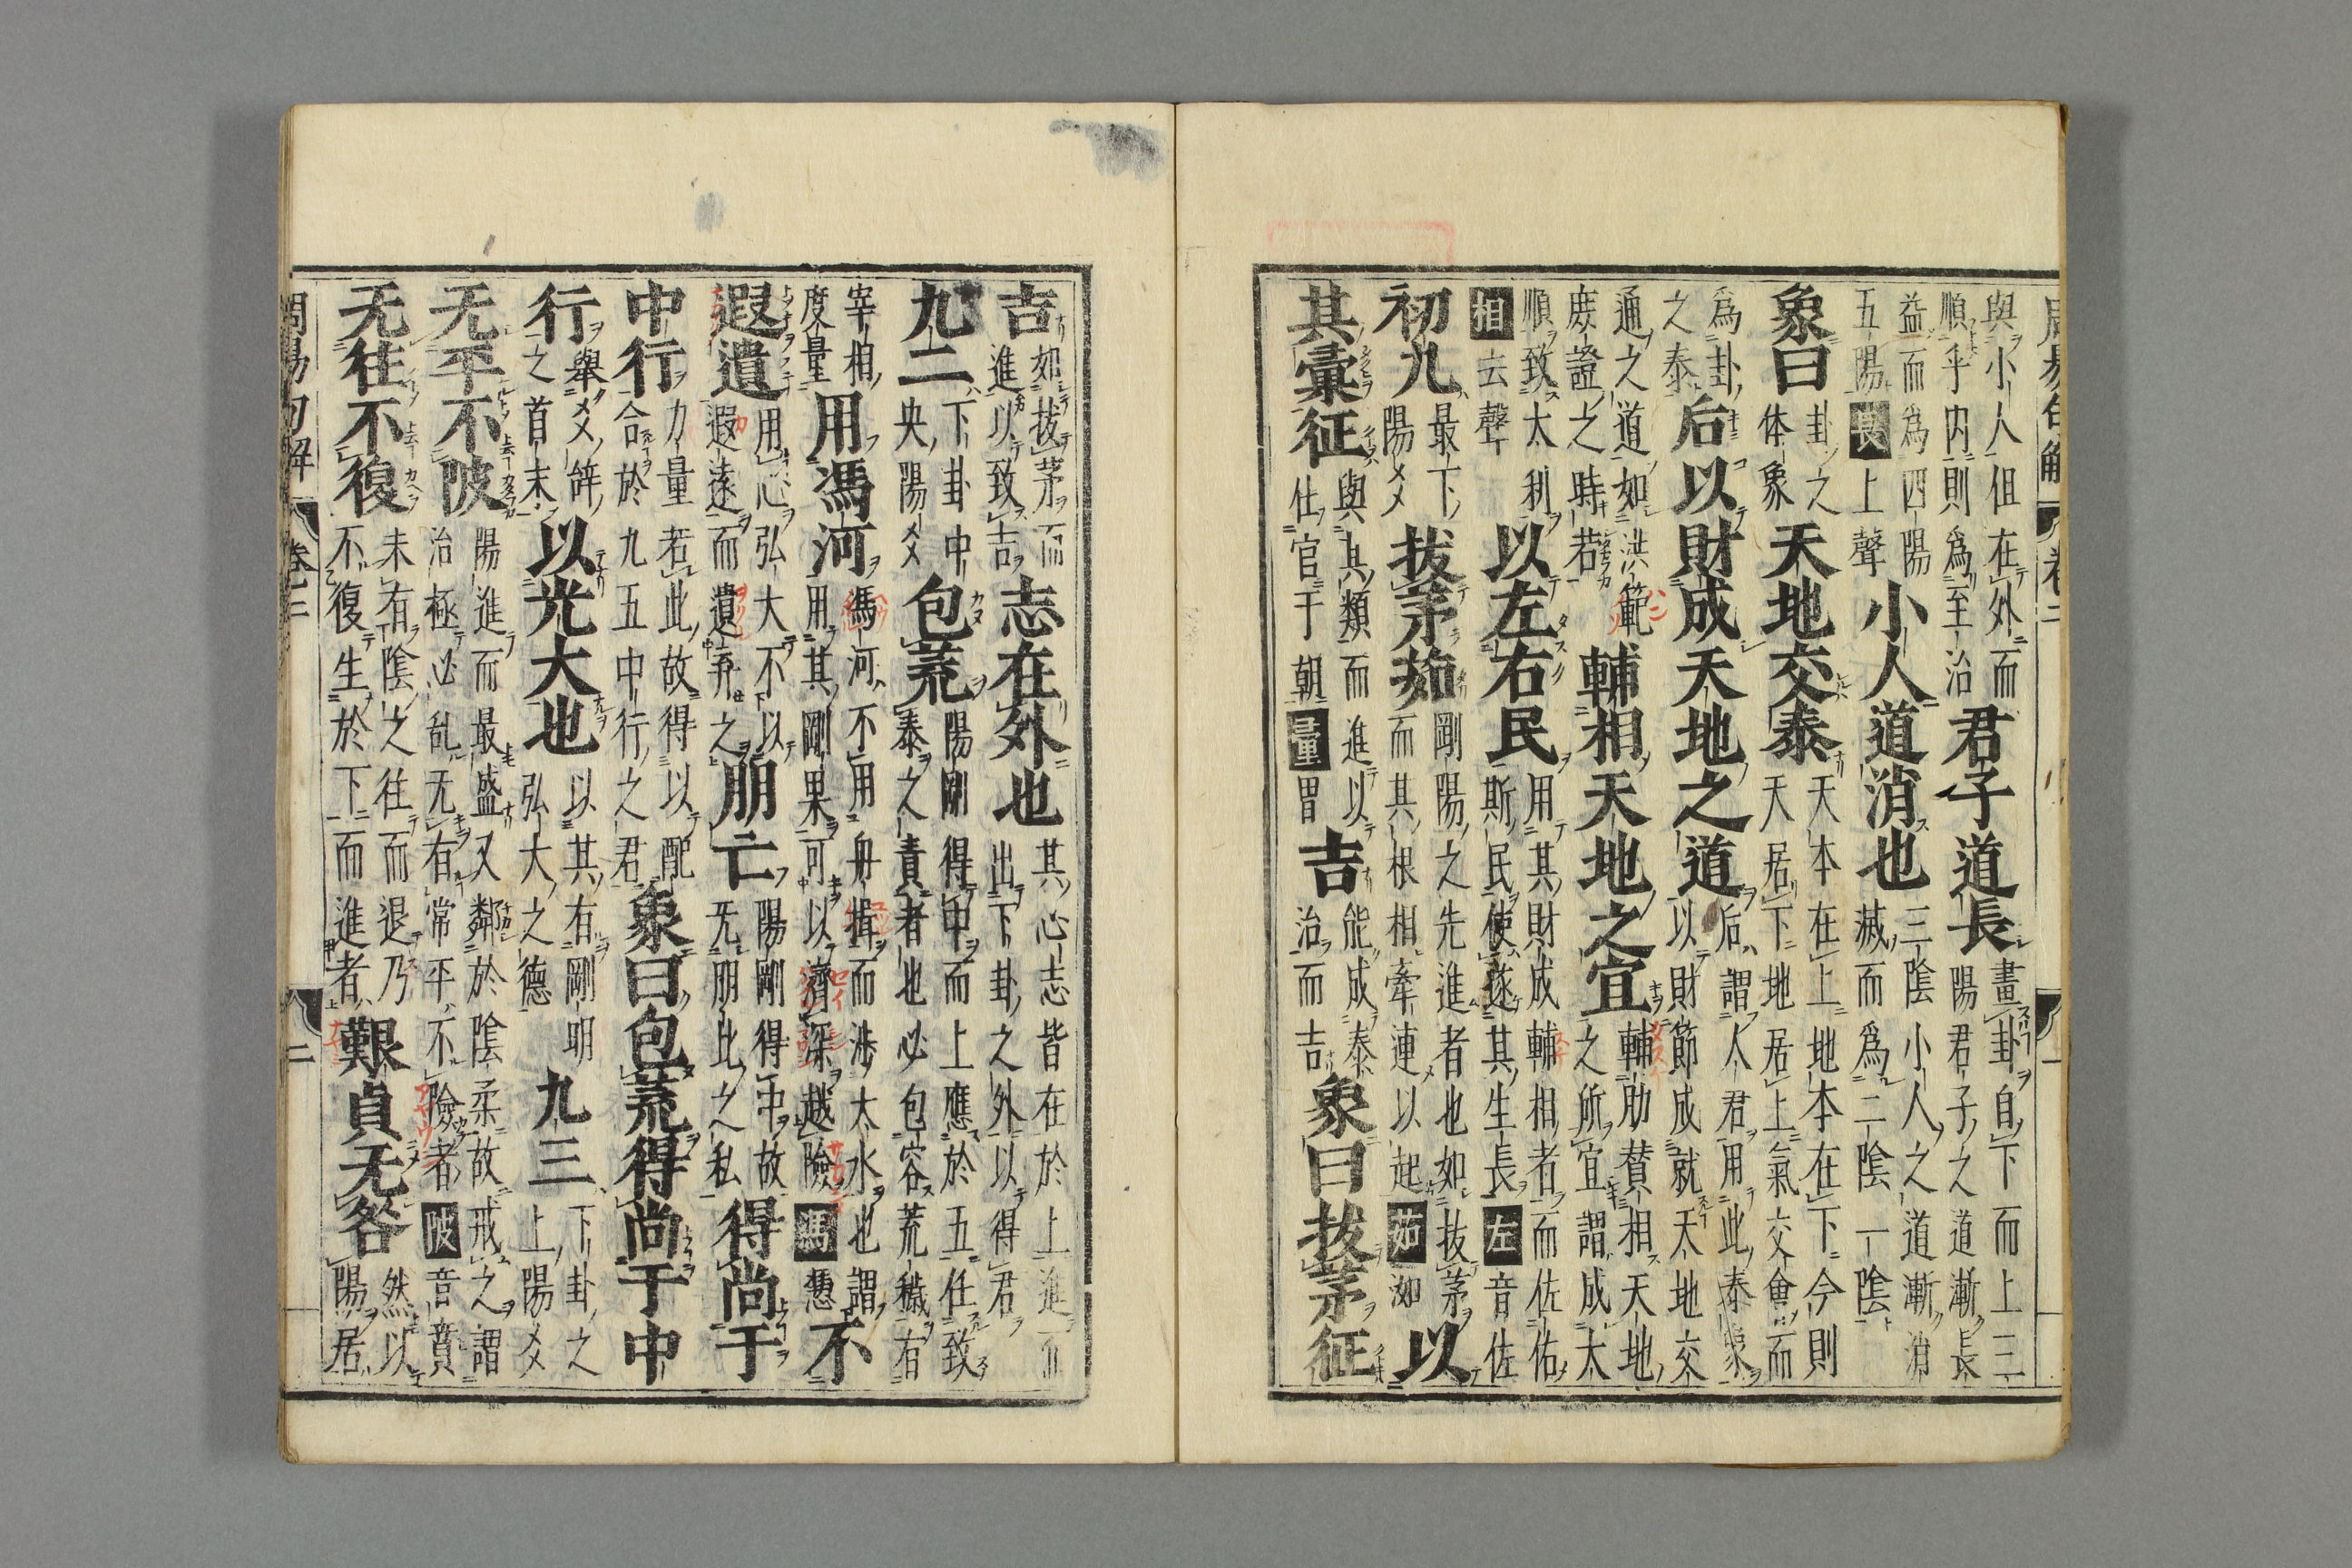 周易句解 卷二 一
與小人但在外而
順乎内則爲至治
君子道長
畫卦自下而上三
陽君子之道漸長
益而爲四陽
五陽長上聲
小人道消也
三陰小人之道漸消
滅而爲二陰一陰
象曰
卦之
体象
天地交泰
天本在上地本在下今則
天居下地居上氣交會而
爲卦
之泰
后以財成天地之道
后謂人君用此泰象
以財節成就天地交
通之道如洪範
庶證之時若
輔相天地之宜
輔助賛相天地
之所宜謂成太
順致太利
相去聲
以左右民
用其財成輔相者而佐佑
斯民使遂其生長左音佐
初九
最下
陽爻
拔茅茹
剛陽之先進者也如拔茅
而其根相牽連以起茹洳
以
其彙征
與其類而進以
仕官于朝彙胃
吉
能成泰
治而吉
象曰拔茅征
吉
如拔茅而
進以致吉
志在外也
其心志皆在於上進而
出下卦之外以得君
九二
下卦中
央陽爻
包荒
陽剛得中而上應於五任致
泰之責者也必包容荒穢有
宰相
度量
用馮河
馮河不用舟揖而涉大水也謂
用其剛果可以濟深越險馮憑
不
遐遺
用心弘大不以
遐遠而遺弃之
朋亡
陽剛得中故
无朋比之私
得尚于
中行
力量若此故得以配
合於九五中行之君
象曰包荒得尚于中
行
舉爻辝
之首末
以光大也
以其有剛明
弘大之德
九三
下卦之
上陽爻
无平不陂
陽進而最盛又鄰於陰柔故戒之謂
治極必乱无有常平不險者陂音賁
无往不復
未有陰之往而退乃
不復生於下而進者
艱貞无咎
然以
陽居
周易句解 卷二 二